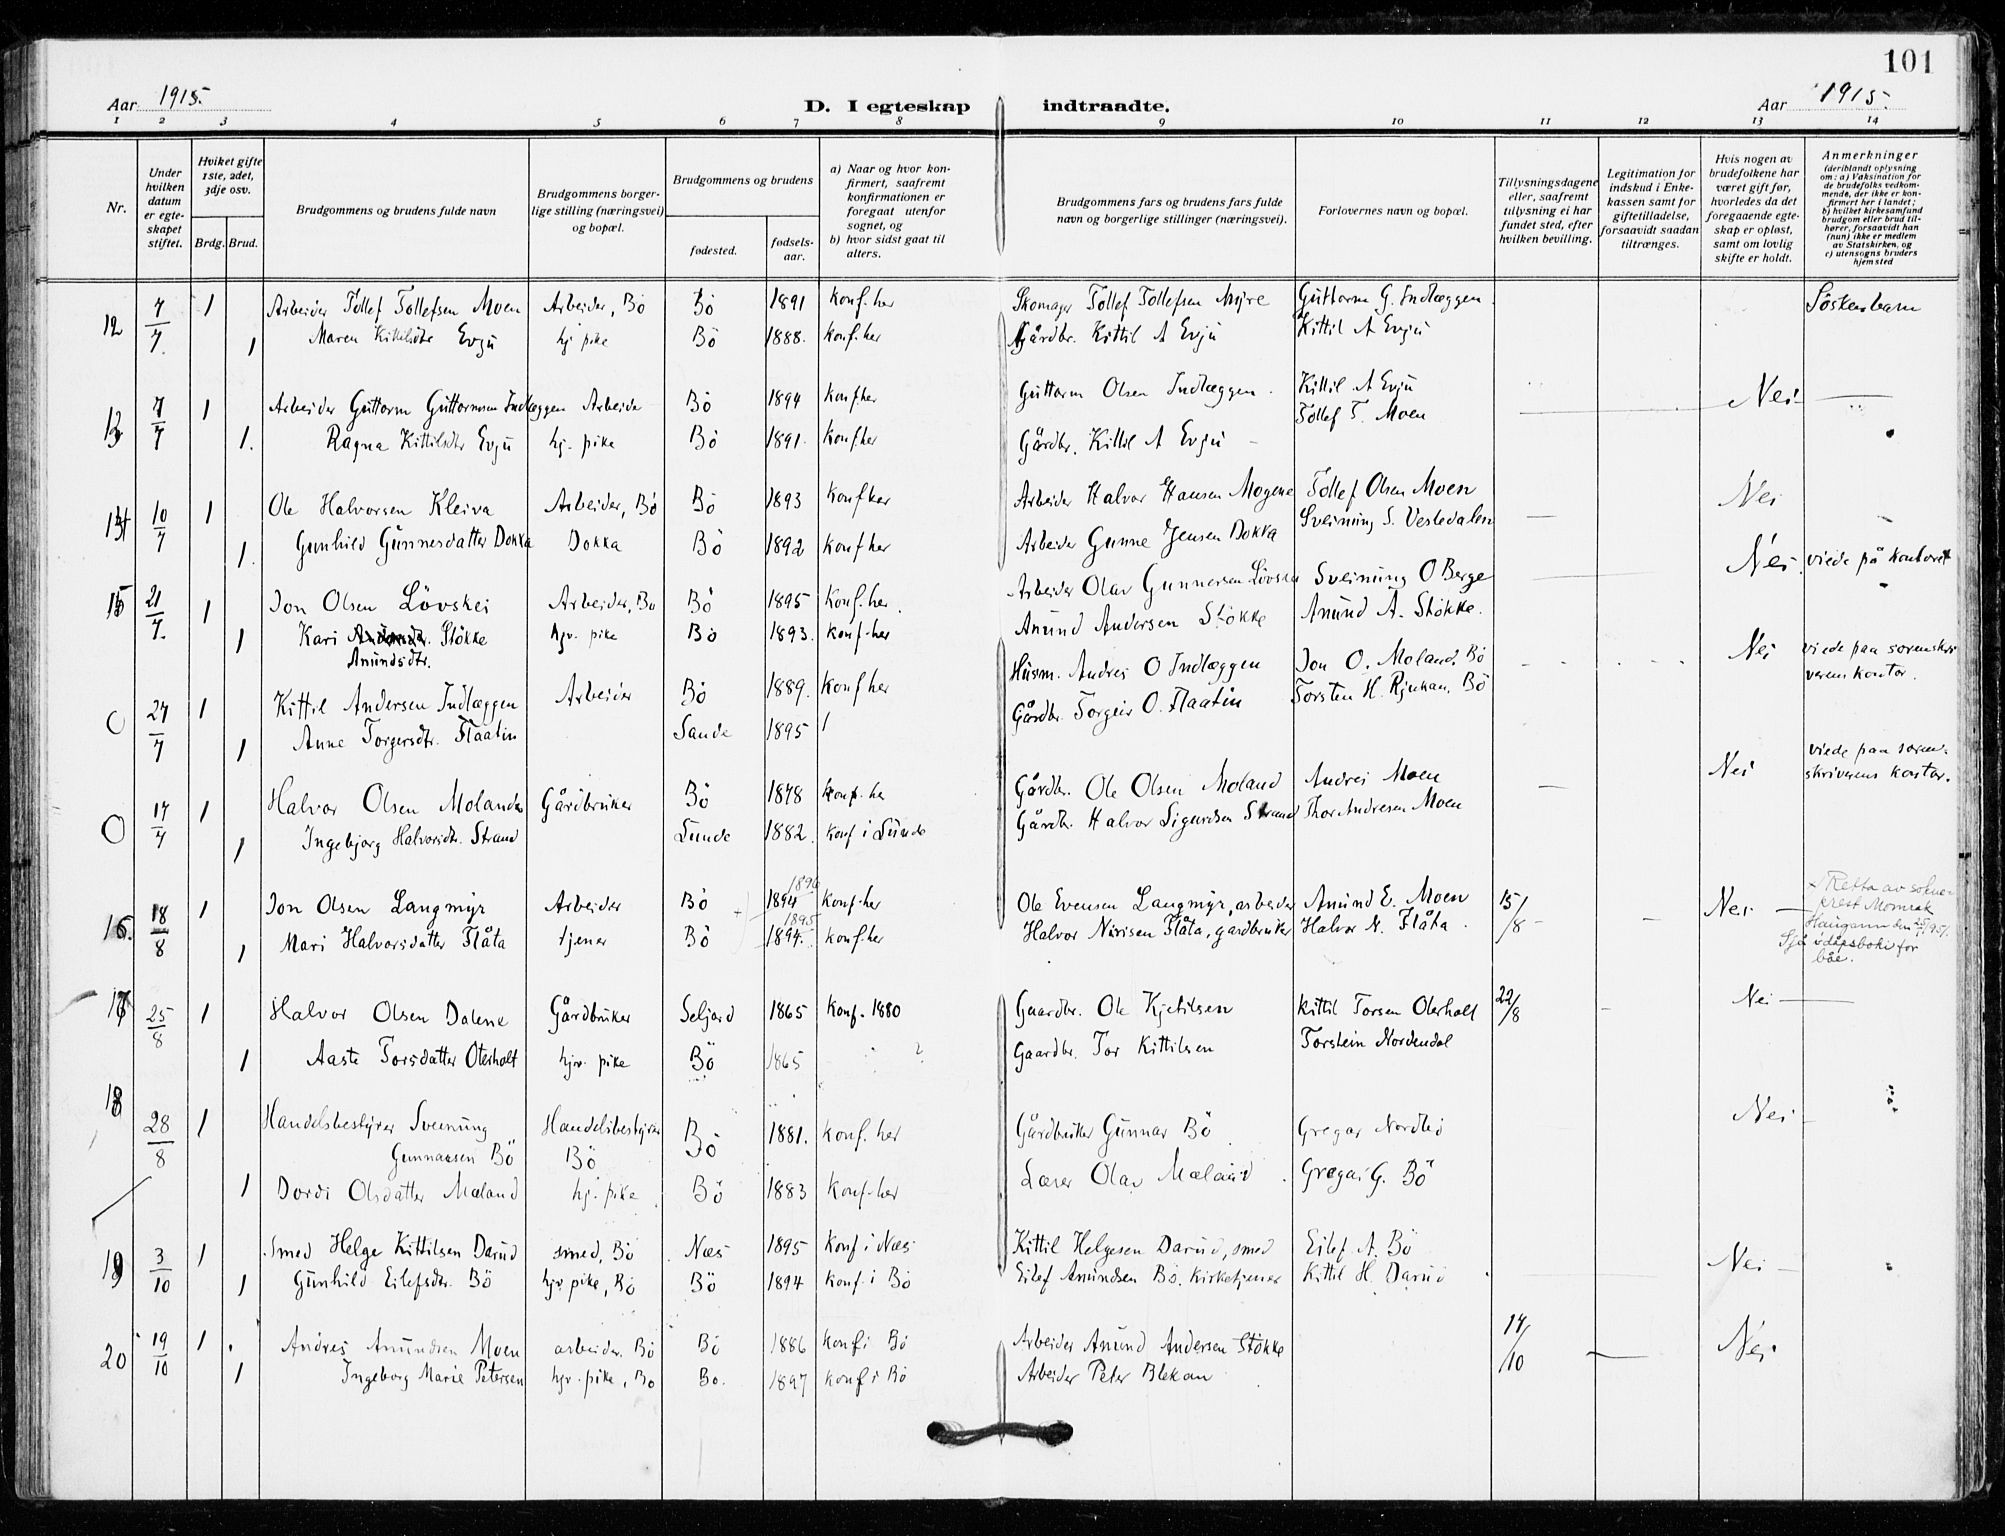 101
Aar 1915.
D. I egteskap indtraadte.
Aar 1915.
1 2 3 4 5 6 7 8 9 10 11 12 13 14
Nr.
Under hvilken datum er egteskapet stiftet.
Hviket gifte 1ste, 2det, 3dje osv.
Brdg. Brud.
Brudgommens og brudens fulde navn
Brudgommens borgerlige stilling (næringsvei) og bopæl.
Brudgommens og brudens
fødested.
fødselsaar.
a) Naar og hvor konfirmert, saafremt konfirmationen er foregaat utenfor sognet, og
b) hvor sidst gaat til alters.
Brudgommens fars og brudens fars fulde navn og borgerlige stillinger (næringsvei).
Forlovernes navn og bopæl.
Tillysningsdagene eller, saafremt tillysning ei har fundet sted, efter hvilken bevilling.
Legitimation for indskud i Enkekassen samt for giftetilladelse, forsaavidt saadan tiltrænges.
Hvis nogen av brudefolkene har været gift før, hvorledes da det foregaaende egteskap er opløst, samt om lovlig skifte er holdt.
Anmerkninger (deriblandt oplysning om: a) Vaksination for de brudefolks vedkommende, der ikke er konfirmert her i landet; b) hvilket kirkesamfund brudgom eller brud tilhører, forsaavidt han (hun) ikke er medlem av Statskirken, og c) utensogns bruders hjemsted
12 7/7. 1 Arbeider Tollef Tollefsen Moen Arbeider, Bö Bö 1891 konf. her Skomager Tollef Tollefsen Myre Guttorm G. Indlæggen Söskenbarn
1 Maren Kittilsdtr Evju hj pike Bö 1888. konf. her Gårdbr. Kittil A Evju Kittil A Evju
13 7/7 1 Arbeider Guttorm Guttormsen Indlæggen Arbeider Bö 1894 konf. her Guttorm Olsen Indlæggen. Kittil A Evju Nei —
1. Ragna Kittilsdtr Evju hj. pike Bö 1891. konf. her Gårdbr. Kittil A Evju — Tollef T. Moen
14 10/7 1 Ole Halvorsen Kleiva Arbeider, Bö Bö 1893 konf her Arbeider Halvor Hansen Mogene Tollef Olsen Moen Nei
1. Gunhild Gunnesdatter Dokka Dokka Bö 1892 konf her Arbeider Gunne Jensen Dokka Sveinung S. Vesledalen
15 21/7. 1 Jon Olsen Lövskei Arbeider, Bö Bö 1895 konf. her. Arbeider Olav Gunnersen Lövskei Sveinung O Berge Nei. viede på kontoret
1 Kari Stökke hjv. pike Bö 1893. konf. her Anund Andersen Stökke Anund A. Stökke.
Anundsdtr.
24/7 1 Kittil Andersen Indlæggen Arbeider Bö 1889. konf her Husm. Andres O Indlæggen Jon O. Moland. Bö Nei viede paa sorenskriverens kontor.
1 Anne Torgersdtr. Flaatin Sande 1895 Gårdbr. Torgeir O. Flaatin Torsten H. Rjukan. Bö
17/7 1 Halvor Olsen Moland Gårdbruker Bö 1878 konf. her Gårdbr. Ole Olsen Moland Andres Moen Nei viede paa sorenskriverens kontor.
1 Ingebjorg Halvorsdtr. Strand Lunde 1882. konf i Lunde Gårdbr. Halvor Sigurdsen Strand Thor Andresen Moen
16. 18/8 1 Jon Olsen Langmyr Arbeider Bö 1894 1896 konf. her Ole Evensen Langmyr, arbeider Anund E. Moen 15/8 — Nei — x Retta av sokneprest Momrak Haugann den 25/1 95.
1 Mari Halvorsdatter Flåta tjener Bö 1894. 1895 konf. her Halvor Nirisen Flåta, gardbruker Halvor N. Flåta. Sjå dåpsboki for båe.
17 25/8 1 Halvor Olsen Dalene Gårdbruker Seljord 1865 konf. 1880 Gaardbr. Ole Kjetilsen Kittil Torsen Oterholt 22/8 Nei —
1 Aaste Torsdatter Oterholt hjv. pike Bö 1865 ? Gaardbr. Tor Kittilsen Torstein Nordendal
18 28/8 1 Handelsbestyrer Sveinung Handelsbestyrer Bö 1881. konf. her Gårdbruker Gunnar Bö Gregar Nordbö Nei —
Gunnarsen Bö Bö
1 Dordi Olsdatter Mæland hj. pike Bö 1883 konf. her Lærer Olav Mæland. Gregar G. Bö
19 3/10 1 Smed Helge Kittilsen Darud smed, Bö Næs 1895 konf i Næs Kittil Helgesen Darud, smed Eilef A. Bö Nei —
1 Gunhild Eilefsdtr. Bö hjv pike, Bö Bö 1894 konf. i Bö Eilef Anundsen Bö. kirketjener Kittil H. Darud
20 19/10 1 Andres Anundsen Moen arbeider. Bö Bö 1886 konf i Bö Arbeider Anund Andersen Stökke 17/10 — Nei
1 Ingeborg Marie Petersen hjv. pike, Bö Bö. 1897 konf i Bö Arbeider Peter Blekan